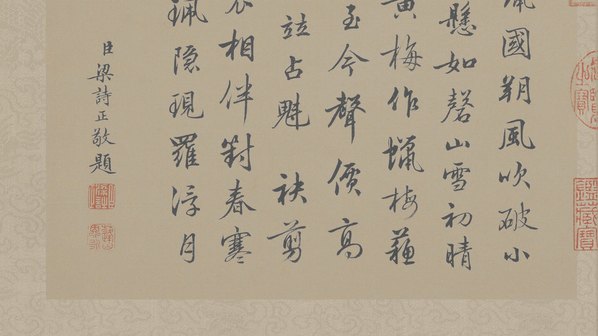 國朔風吹破小
懸如磬山雪初晴
黄梅作蠟梅蘓
至今聲價高
竝占魁 袂剪
相伴對春寒
珮隐現羅浮月
臣梁詩正敬題